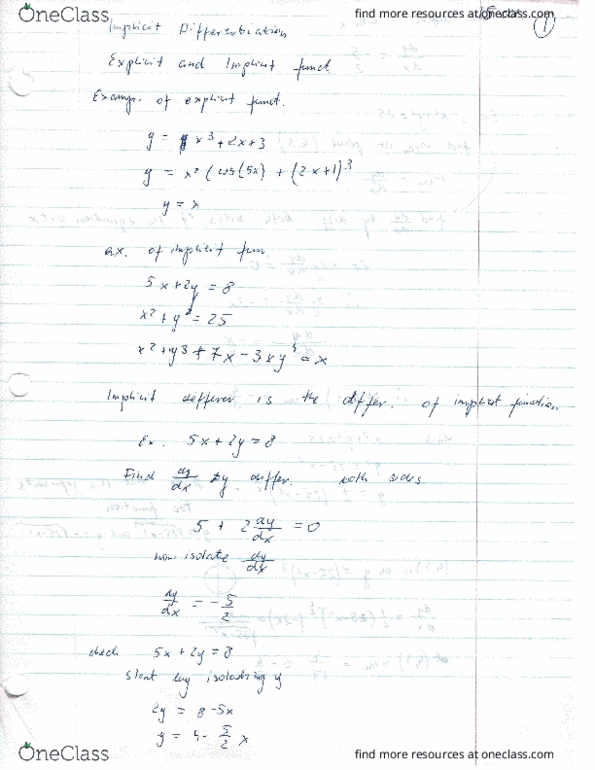 OneClass
find more resources at oneclass.com
1
Implicit Differentiation
Explicit and Implicit funct
Examp. of explicit funct.
y = x³ + 2x + 3
y = x² (cos(5x) + (2x+1)³
y = x
ex. of implicit fun
5x + 2y = 8
x² + y² = 25
x² + y³ + 7x - 3xy⁵ = x
Implicit differen is the differ. of implicit function
Ex. 5x + 2y = 8
Find dy/dx by differ. both sides
5 + 2 dy/dx = 0
now isolate dy/dx
dy/dx = - 5/2
check 5x + 2y = 8
Start by isolating y
2y = 8 - 5x
y = 4 - 5/2 x
OneClass
find more resources at oneclass.com